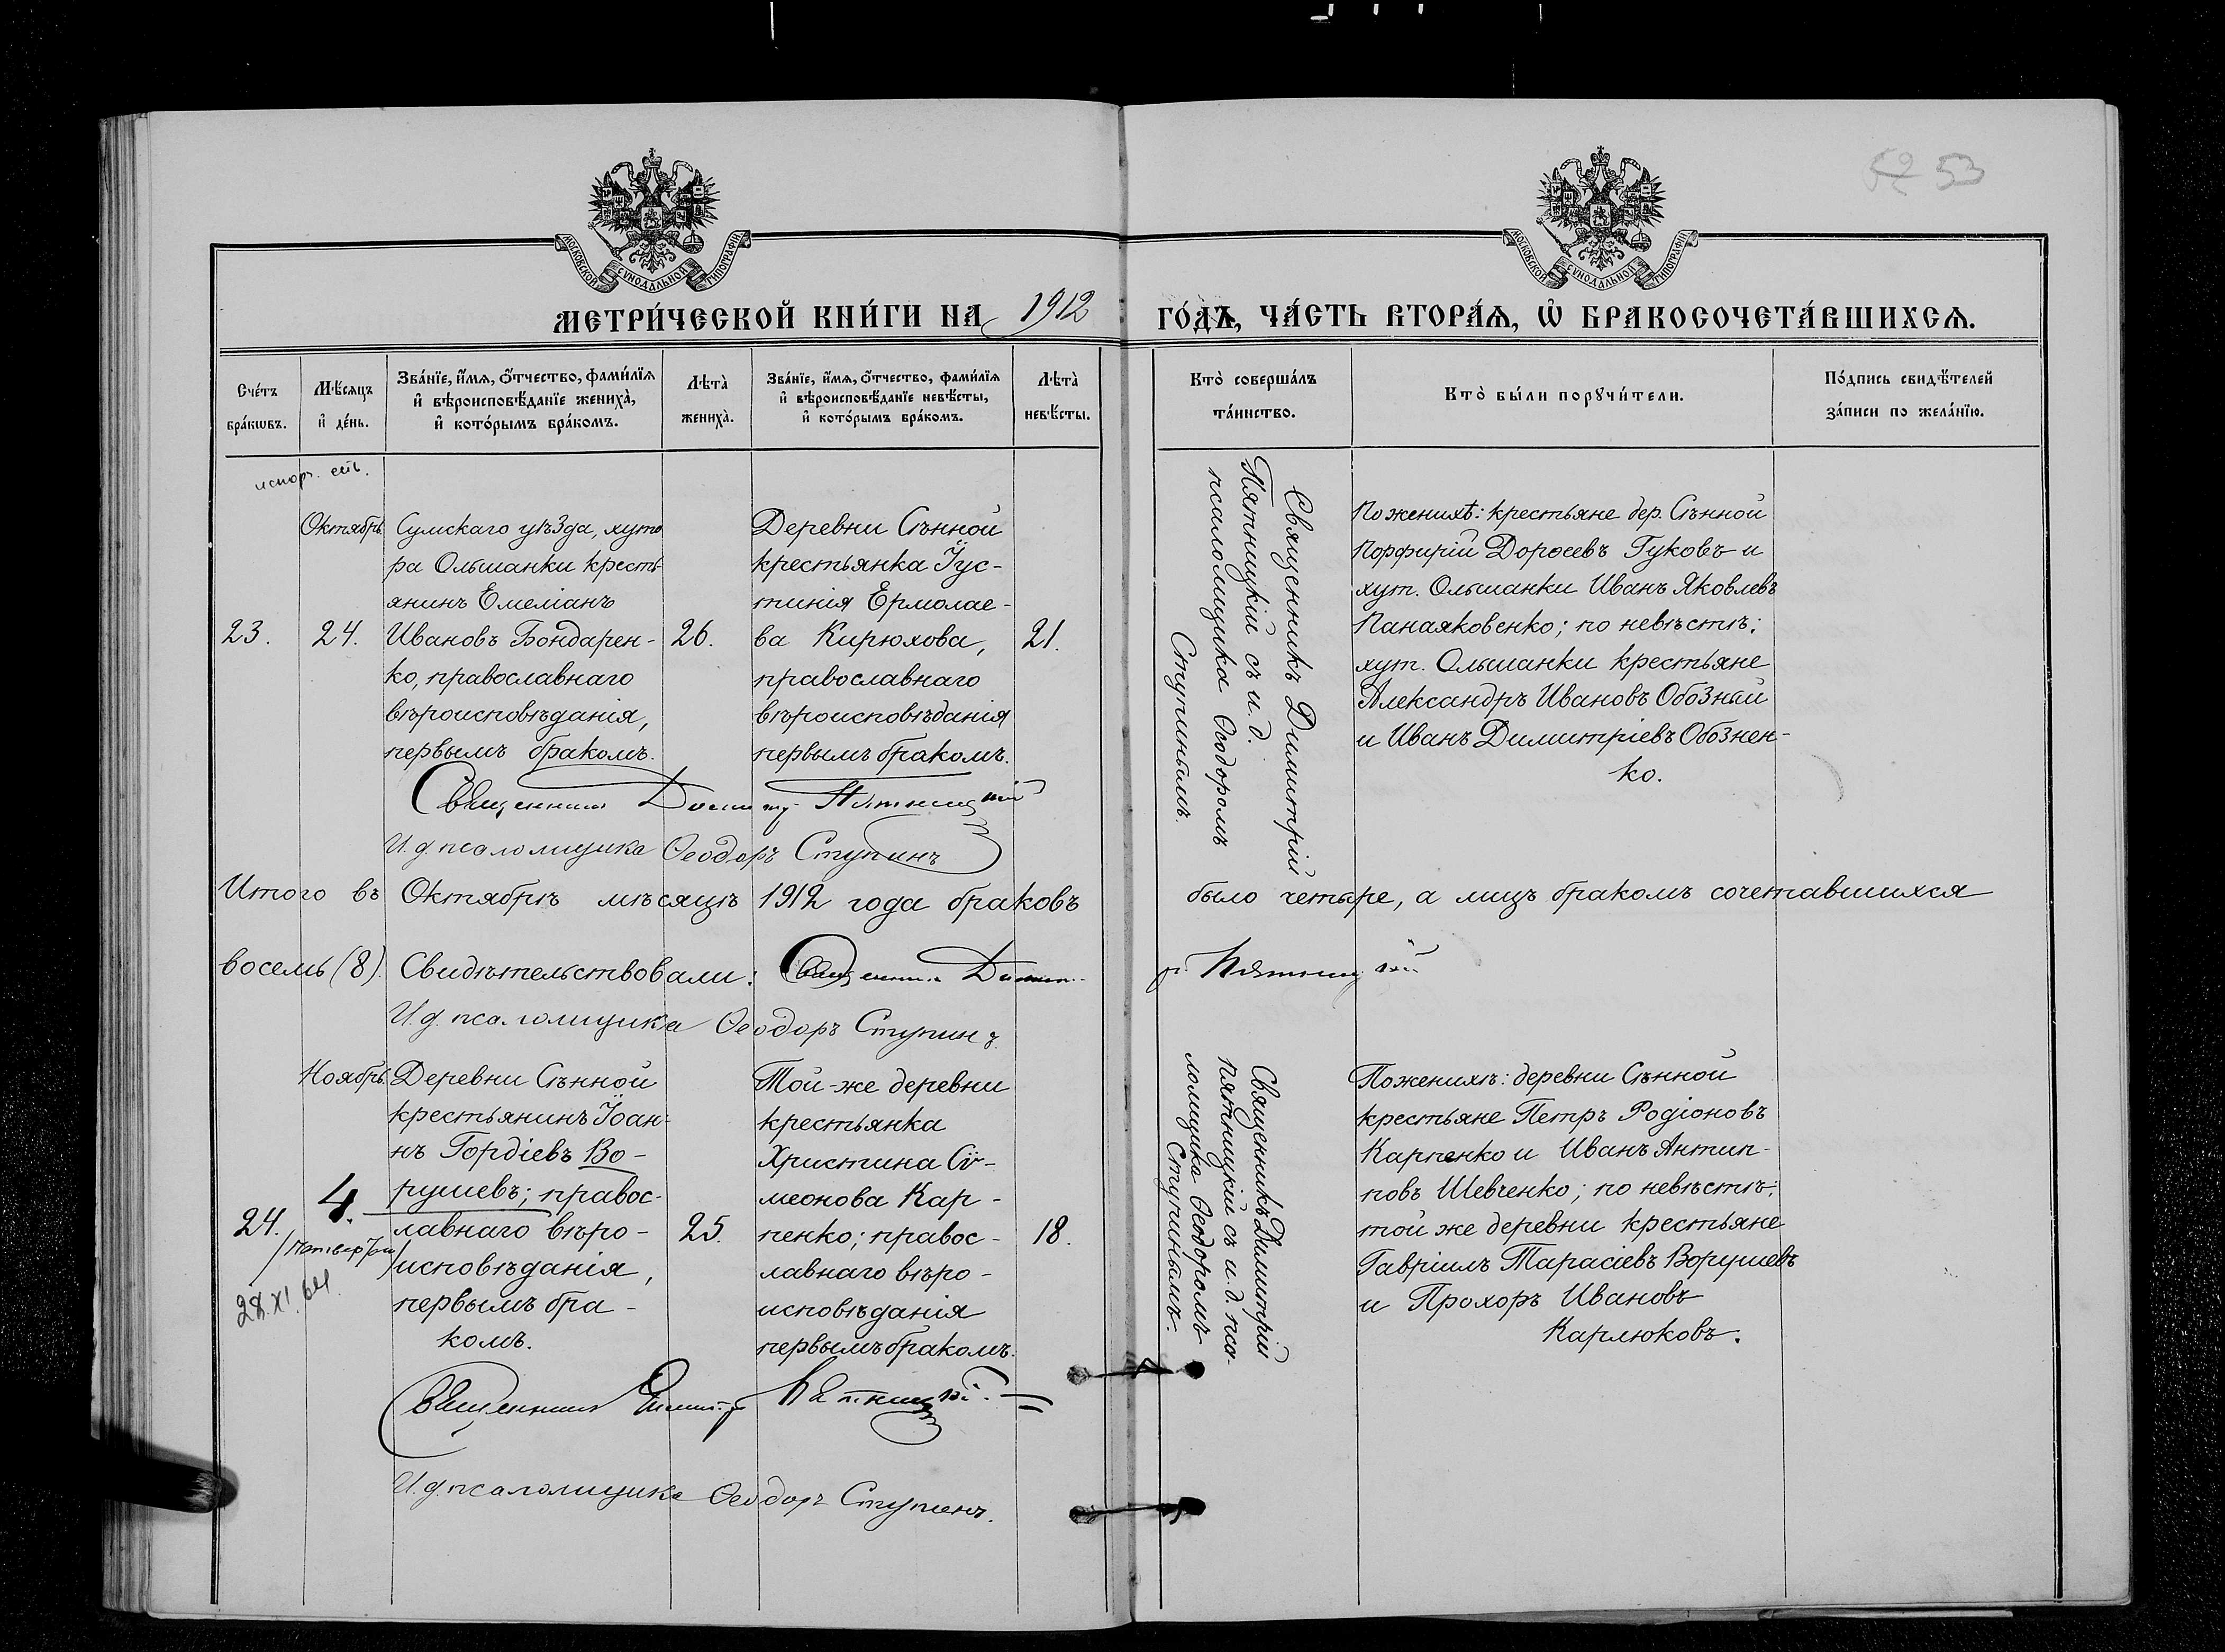 52 53
МОСКОВСКОЙ СѴНОДАЛЬНОЙ ТИПОГРАФІИ
МОСКОВСКОЙ СѴНОДАЛЬНОЙ ТИПОГРАФІИ
МЕТРИ́ЧЕСКОЙ КНИ́ГИ НА 1912 ГО́ДЪ, ЧА́СТЬ ВТОРА́Ѧ, Ѡ҆ БРАКОСОЧЕТА́ВШИХСѦ.
Сче́тъ
бра́кѡвъ.
Мѣ́сяцъ
и҆ де́нь.
Зва́нїе, и҆́мѧ, ѻ҆́тчество, фами́лїѧ
и҆ вѣроисповѣ́данїе жениха̀,
и҆ кото́рымъ бра́комъ.
Лѣта̀
жениха̀.
Зва́нїе, и҆́мѧ, ѻ҆́тчество, фами́лїѧ
и҆ вѣроисповѣ́данїе невѣ́сты,
и҆ кото́рымъ бра́комъ.
Лѣта̀
невѣ́сты.
Кто̀ соверша́лъ
та́инство.
Кто̀ бы́ли порꙋчи́тели.
По́дпись свидѣ́телей
за́писи по жела́нїю.
Октябрь
23.
24.
Сумскаго уѣзда, хуто
ра Ольшанки кресть
янинъ Емеліанъ
Ивановъ Бондарен-
ко, православнаго
вѣроисповѣданія,
первымъ бракомъ.
26.
Деревни Сѣнной
крестьянка Іус-
тинія Ермолае-
ва Кирюхова,
православнаго
вѣроисповѣданія
первымъ бракомъ.
21.
Священникъ Димитрій
Пятницкій съ и.д.
псаломщика Ѳеодоромъ
Ступинымъ.
По женихѣ: крестьяне дер. Сѣнной
Порфирій Дороѳевъ Гуковъ и
хут. Ольшанки Иванъ Яковлевъ
Панаяковенко; по невѣстѣ:
хут. Ольшанки крестьяне
Александръ Ивановъ Обозный
и Иванъ Димитріевъ Обознен-
ко.
Священникъ Димитр Пятницкій
И.д. псаломщика Ѳеодоръ Ступинъ
Итого въ Октябрѣ мѣсяцѣ 1912 года браковъ было четыре, а лицъ бракомъ сочетавшихся
восемь (8). Свидѣтельствовали: Священникъ Димитр. Пятницкій
И.д. псаломщика Ѳеодоръ Ступинъ.
Ноябрь.
24.
4.
/четверт/
28.XI.64.
Деревни Сѣнной
крестьянинъ Іоан-
нъ Гордіевъ Во-
рушевъ; правос-
лавнаго вѣро-
исповѣданія,
первымъ бра-
комъ.
25.
Той-же деревни
крестьянка
Христина Сѵ-
меонова Кар-
пенко; правос-
лавнаго вѣро-
исповѣданія
первымъ бракомъ.
18.
Священникъ Димитрій
Пятницкій съ и.д. пса-
ломщика Ѳеодоромъ
Ступинымъ.
По женихѣ: деревни Сѣнной
крестьяне Петръ Родіоновъ
Карпенко и Иванъ Антип-
повъ Шевченко; по невѣстѣ:
той же деревни крестьяне
Гавріилъ Тарасіевъ Ворушевъ
и Прохоръ Ивановъ
Карлюковъ.
Священникъ Димитр Пятницкій.
И.д. псаломщика Ѳеодоръ Ступинъ.